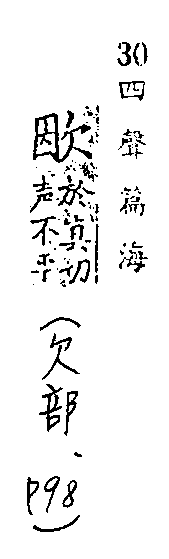 30 四聲篇海
欭
於真切
声不平
(欠部、
P98)